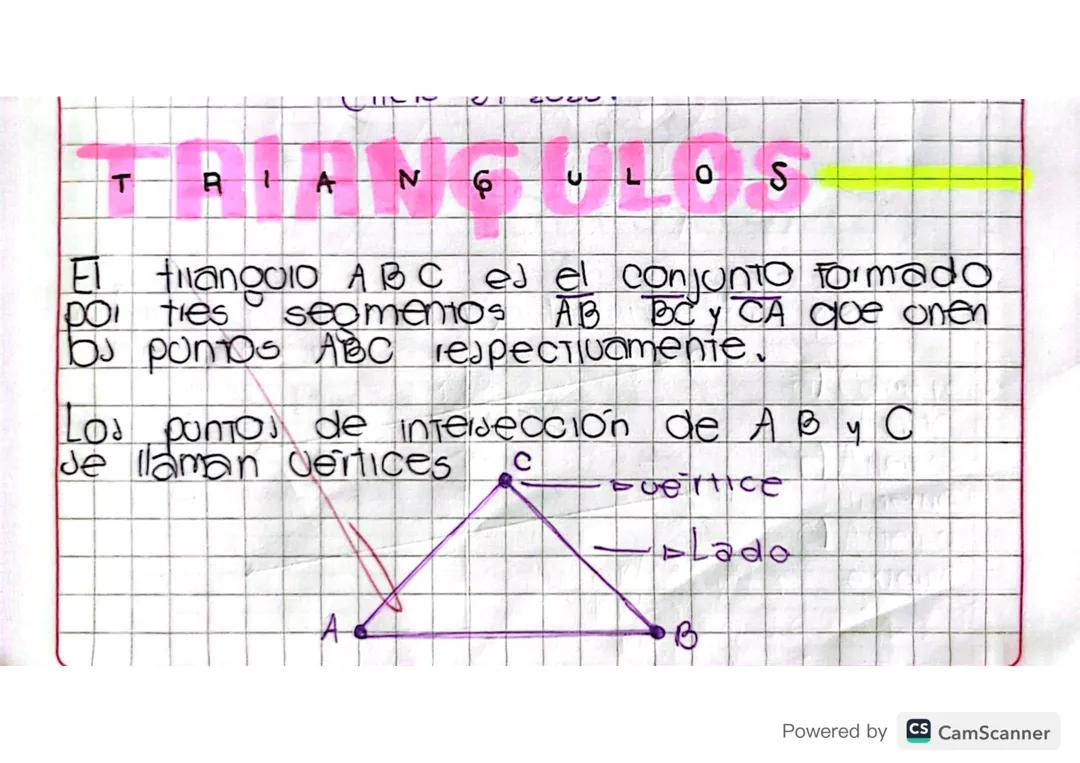 TRIANGULOS
El triangulo ABC es el conjunto formado
por tres segmentos AB BC y CA que unen
los puntos ABC respectivamente.
Los puntos de intersección de A B y C
se llaman vértices
C
vértice
Lado
A
B
Powered by CS CamScanner